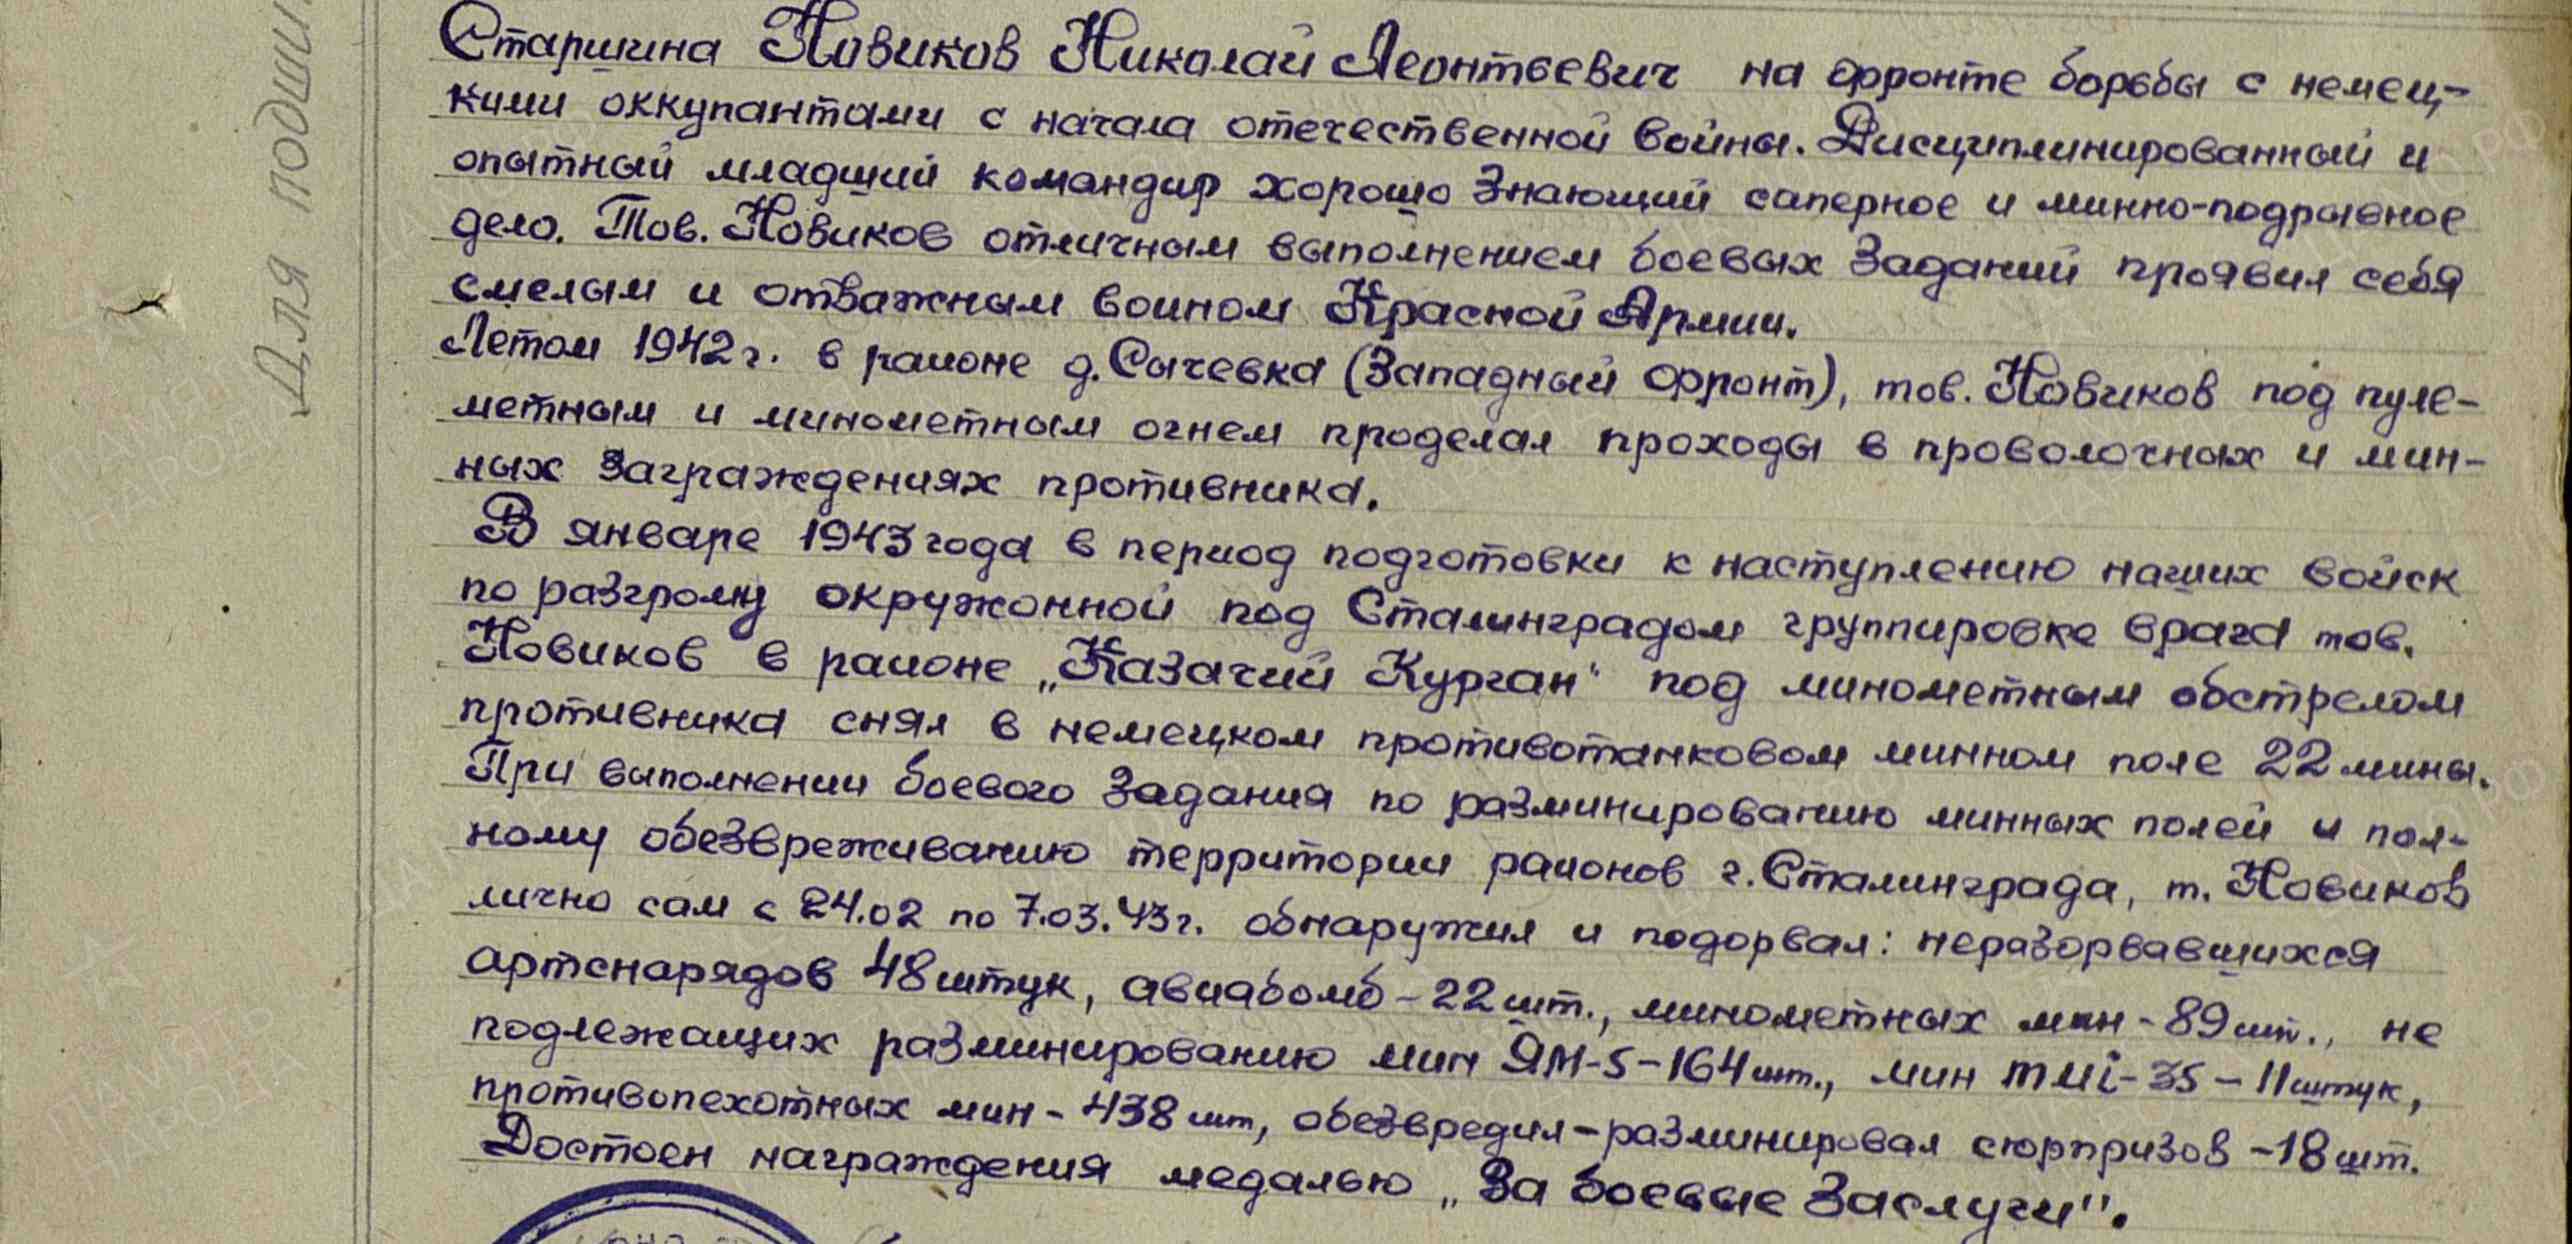 Для подши
Старшина Новиков Николай Леонтьевич на фронте борьбы с немец-
кими оккупантами с начала отечественной войны. Дисциплинированный и
опытный младший командир хорошо знающий саперное и минно-подрывное
дело. Тов. Новиков отличным выполнением боевых заданий проявил себя
смелым и отважным воином Красной Армии.
Летом 1942г. в районе д. Сычевка (Западный фронт), тов. Новиков под пуле-
метным и минометным огнем проделал проходы в проволочных и мин-
ных заграждениях противника.
В январе 1943 года в период подготовки к наступлению наших войск
по разгрому окружонной под Сталинградом группировке врага тов.
Новиков в районе „Казачий Курган" под минометным обстрелом
противника снял в немецком противотанковом минном поле 22 мины.
При выполнении боевого задания по разминированию минных полей и пол-
ному обезвреживанию территории районов г. Сталинграда, т. Новиков
лично сам с 24.02 по 7.03.43г. обнаружил и подорвал: неразорвавшихся
артснарядов 48 штук, авиабомб - 22 шт., минометных мин - 89 шт., не
подлежащих разминированию мин ЯМ-5 - 164 шт., мин ТМi-35 - 11 штук,
противопехотных мин - 438 шт, обезвредил - разминировал сюрпризов - 18 шт.
Достоен награждения медалью „За боевые заслуги".
ПАМЯТЬ НАРОДА